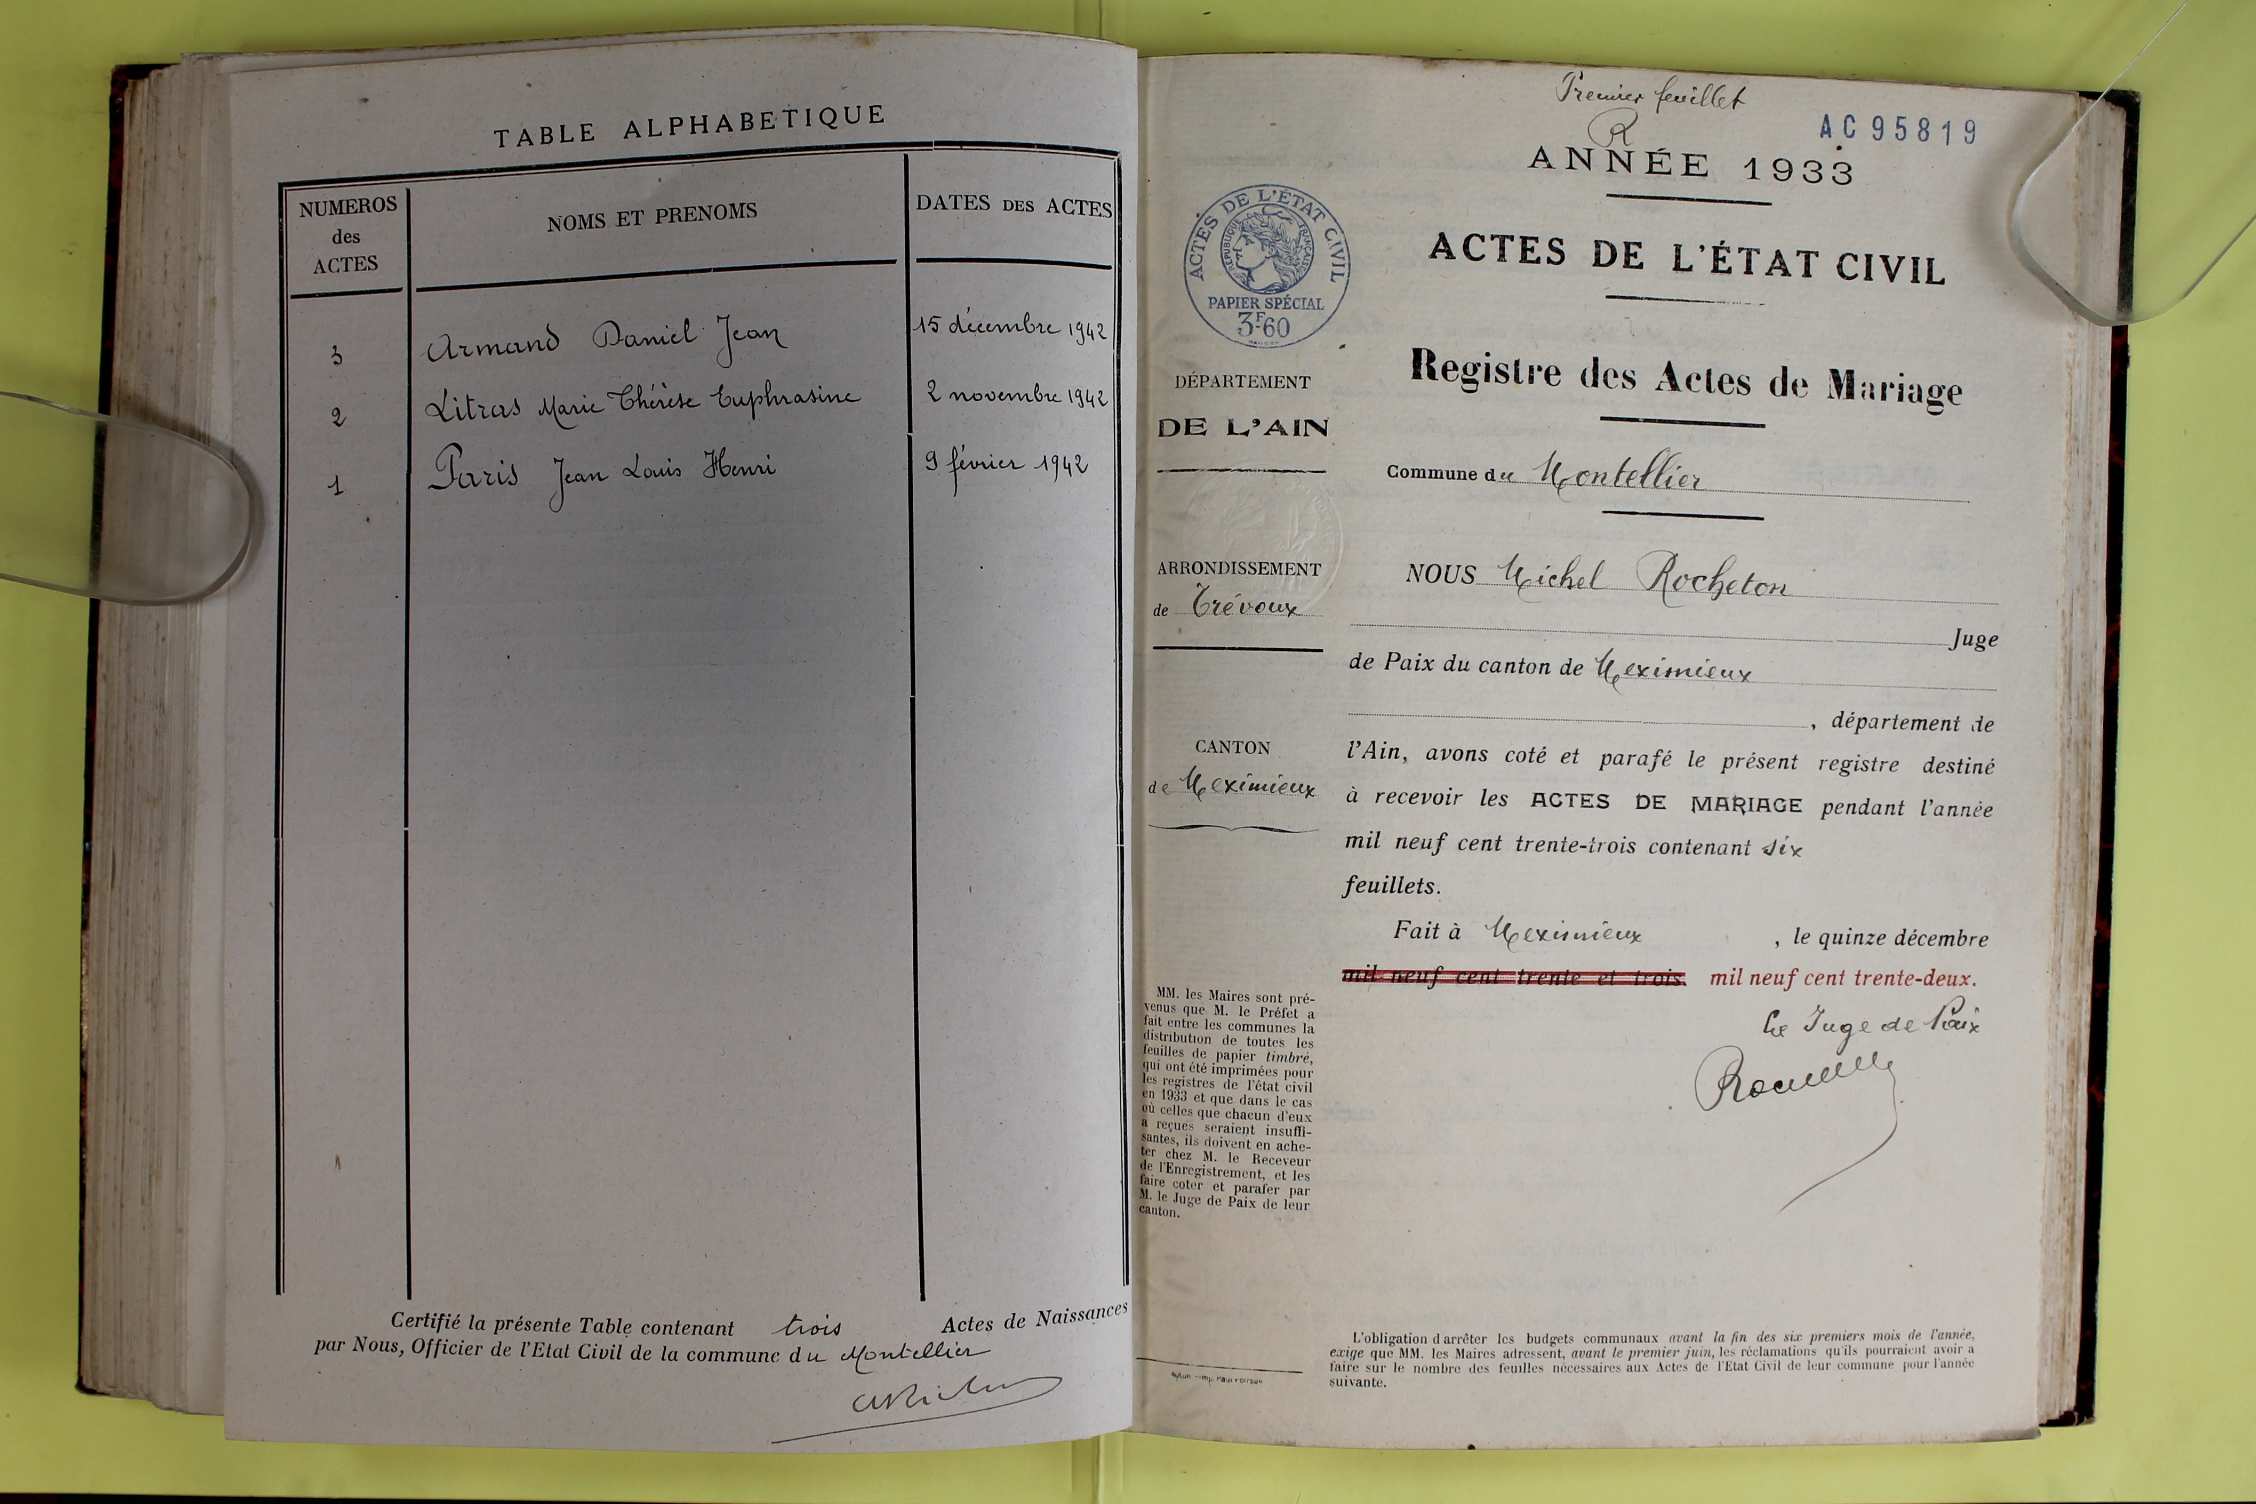 TABLE ALPHABETIQUE
NUMEROS
des
ACTES
NOMS ET PRENOMS
DATES DES ACTES
3 Armand Daniel Jean 15 décembre 1942
2 Litras Marie Thérèse Euphrasine 2 novembre 1942
1 Paris Jean Louis Henri 9 février 1942
Certifié la présente Table contenant trois Actes de Naissances
par Nous, Officier de l'Etat Civil de la commune du Montellier
Premier feuillet
R
AC95819
ANNÉE 1933
ACTES DE L'ÉTAT CIVIL
RÉPUBLIQUE FRANÇAISE
PAPIER SPÉCIAL
3F60
ACTES DE L'ÉTAT CIVIL
Registre des Actes de Mariage
DÉPARTEMENT
DE L'AIN
Commune du Montellier
ARRONDISSEMENT
de Trévoux
CANTON
de Meximieux
NOUS Michel Rocheton
Juge
de Paix du canton de Meximieux
, département de
l'Ain, avons coté et parafé le présent registre destiné
à recevoir les ACTES DE MARIAGE pendant l'année
mil neuf cent trente-trois contenant six
feuillets.
Fait à Meximieux , le quinze décembre
mil neuf cent trente et trois. mil neuf cent trente-deux.
Le Juge de Paix
MM. les Maires sont pré-
venus que M. le Préfet a
fait entre les communes la
distribution de toutes les
feuilles de papier timbré,
qui ont été imprimées pour
les registres de l'état civil
en 1933 et que dans le cas
où celles que chacun d'eux
a reçues seraient insuffi-
santes, ils doivent en ache-
ter chez M. le Receveur
de l'Enregistrement, et les
faire coter et parafer par
M. le Juge de Paix de leur
canton.
L'obligation d'arrêter les budgets communaux avant la fin des six premiers mois de l'année,
exige que MM. les Maires adressent, avant le premier juin, les réclamations qu'ils pourraient avoir a
faire sur le nombre des feuilles nécessaires aux Actes de l'Etat Civil de leur commune pour l'année
suivante.